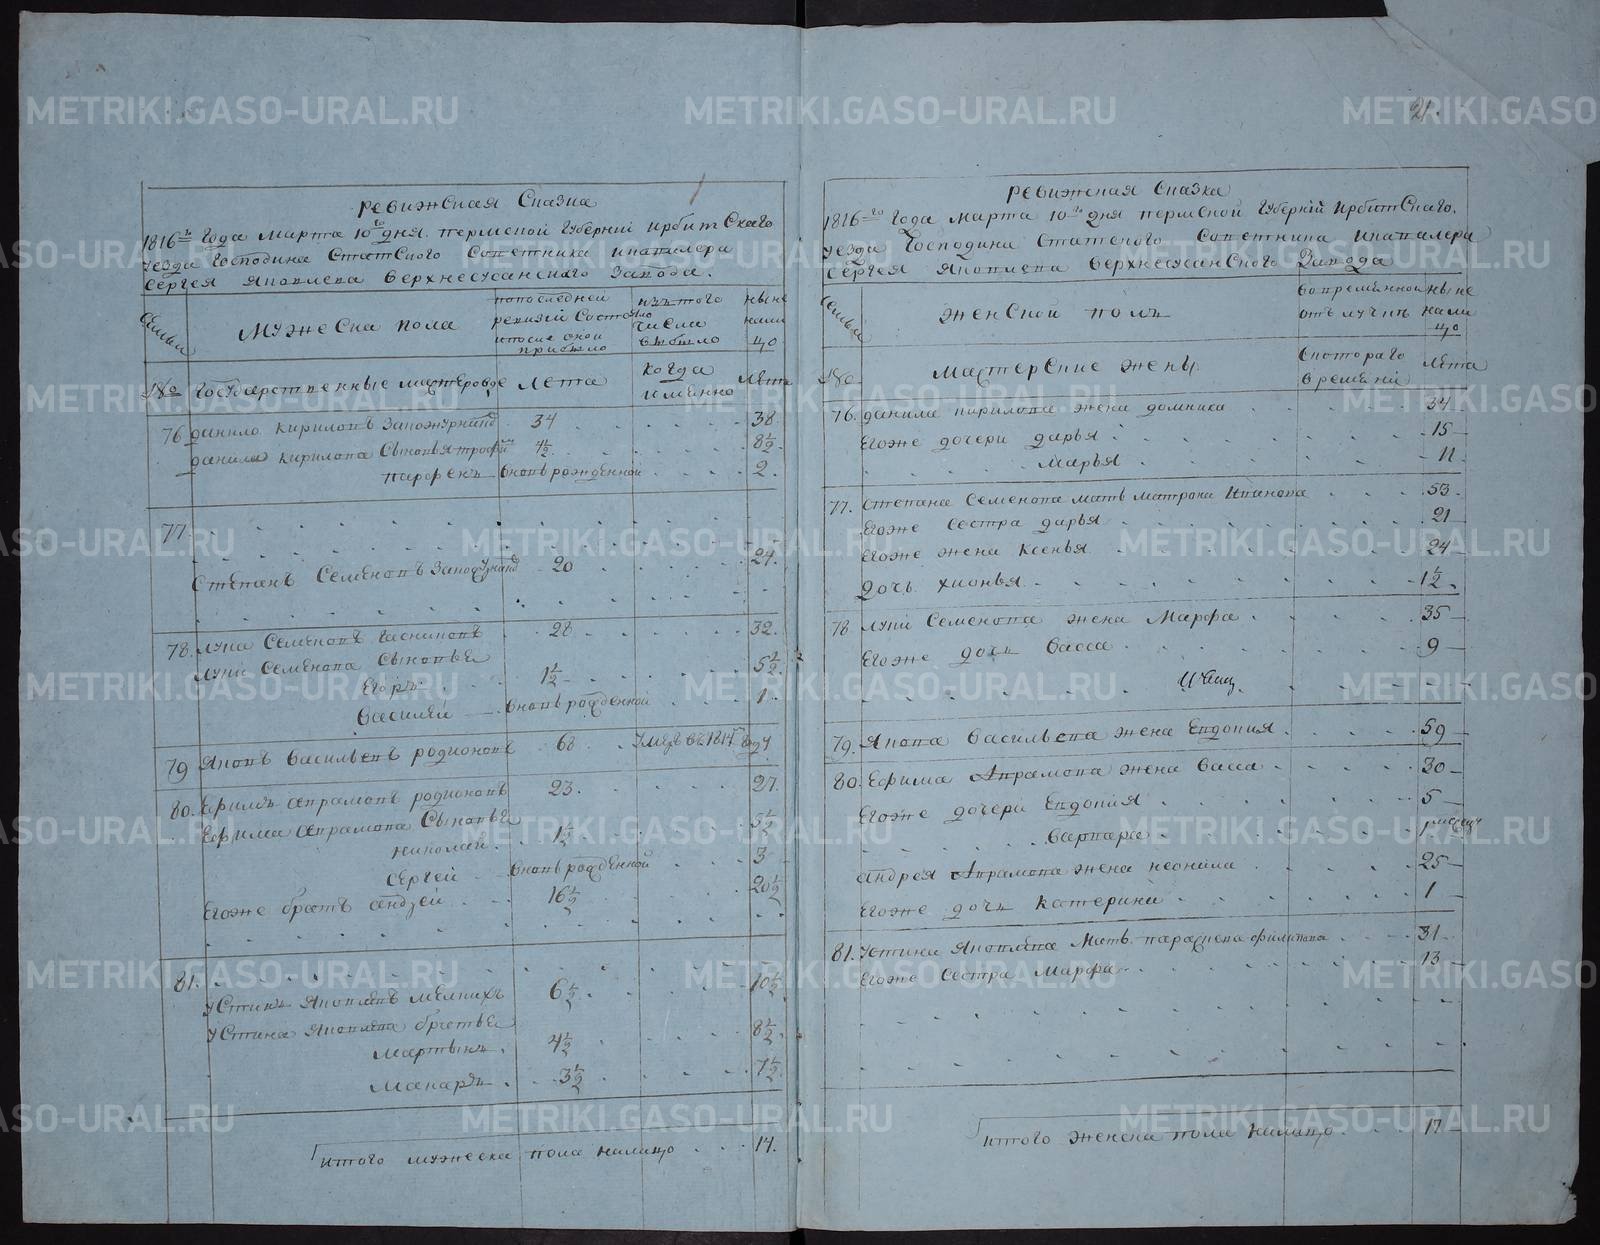 21.
Ревижская Сказка
1816 го Года Марта 10 го дня Пермской Губерніи Ирбитскаго
Уезда Господина Статского Советника Икавалера
Сергея Яковлева Верхнесусанского Завода.
Семьи
Мужеска пола
попоследней ревизіи Состояло ипосле оной прибыло
изътого числа выбыло
ныне налицо
Государственные мастеровые
Лета
когда именно
Лета
76 Данило Кириловъ 34 38
Данила Кирилова Сыновья Трофим 4½ 8½
Парфенъ вновь рожденной 2.
77.
Степанъ Семеновъ 20 24.
78. Лука Семеновъ 28 32.
Луки Семенова Сыновья
Егоръ 1½ 5½
Василей вновь рожденной 1.
79 Яковъ Васильевъ Родионовъ 68
80. Ефимъ Аврамовъ Родионовъ 23. 27.
Ефима Аврамова Сыновья
Николай 1½ 5½
Сергей вновь рожденной 3
Егоже братъ Андрей 16½ 20½
81.
Устинъ Яковлевъ Мелкихъ 6½ 10½
Устина Яковлева братья
Мартынъ. 4½ 8½
Макаръ 3½ 7½
Итого мужеска пола налицо 14.
Ревижская Сказка
1816 го Года Марта 10 го дня Пермской Губерніи Ирбитскаго.
Уезда Господина Статского Советника Икавалера
Сергея Яковлева Верхнесусанского Завода
Семьи
Женской полъ
Вовременной отлучке
ныне налицо
Мастерские жены
Скотораго времени
Лета
76. Данила Кирилова жена Домника 34
Егоже дочери Дарья 15
Марья 11.
77. Степана Семенова мать Матрона Иванова 53.
Егоже Сестра Дарья 21
Егоже жена Ксенья 24
Дочь Хионья 1½
78 Луки Семенова жена Марфа 35
Егоже дочь Васса 9
79. Якова Васильева жена Евдокия 59
80. Ефима Аврамова жена Васса 30
Егоже дочери Евдокия 5
Варвара 1 месяц
Андрея Аврамова жена Неонила 25
Егоже дочь Катерина 1
81. Устина Яковлева Мать Парасковья Филипова 31
Егоже Сестра Марфа 13
Итого женска пола налицо 17
METRIKI.GASO-URAL.RU